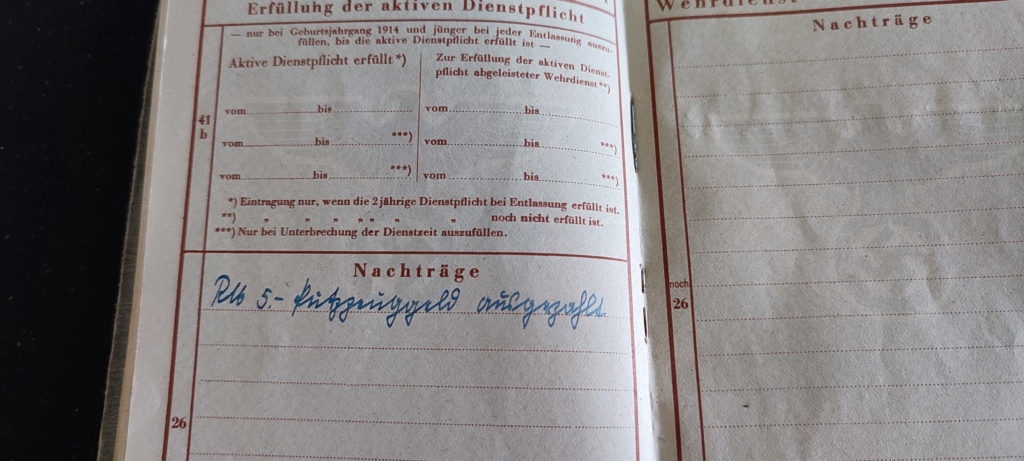 Erfüllung der aktiven Dienstpflicht
— nur bei Geburtsjahrgang 1914 und jünger bei jeder Entlassung auszu-
füllen, bis die aktive Dienstpflicht erfüllt ist —
Aktive Dienstpflicht erfüllt *)
vom bis
vom bis ***)
vom bis ***)
Zur Erfüllung der aktiven Dienst-
pflicht abgeleisteter Wehrdienst **)
vom bis
vom bis ***)
vom bis ***)
41
b
*) Eintragung nur, wenn die 2 jährige Dienstpflicht bei Entlassung erfüllt ist.
**) „ „ „ „ „ „ „ noch nicht erfüllt ist.
***) Nur bei Unterbrechung der Dienstzeit auszufüllen.
Nachträge
5.- Putzzeuggeld ausgezahlt
26
Wehrdienst
Nachträge
noch
26